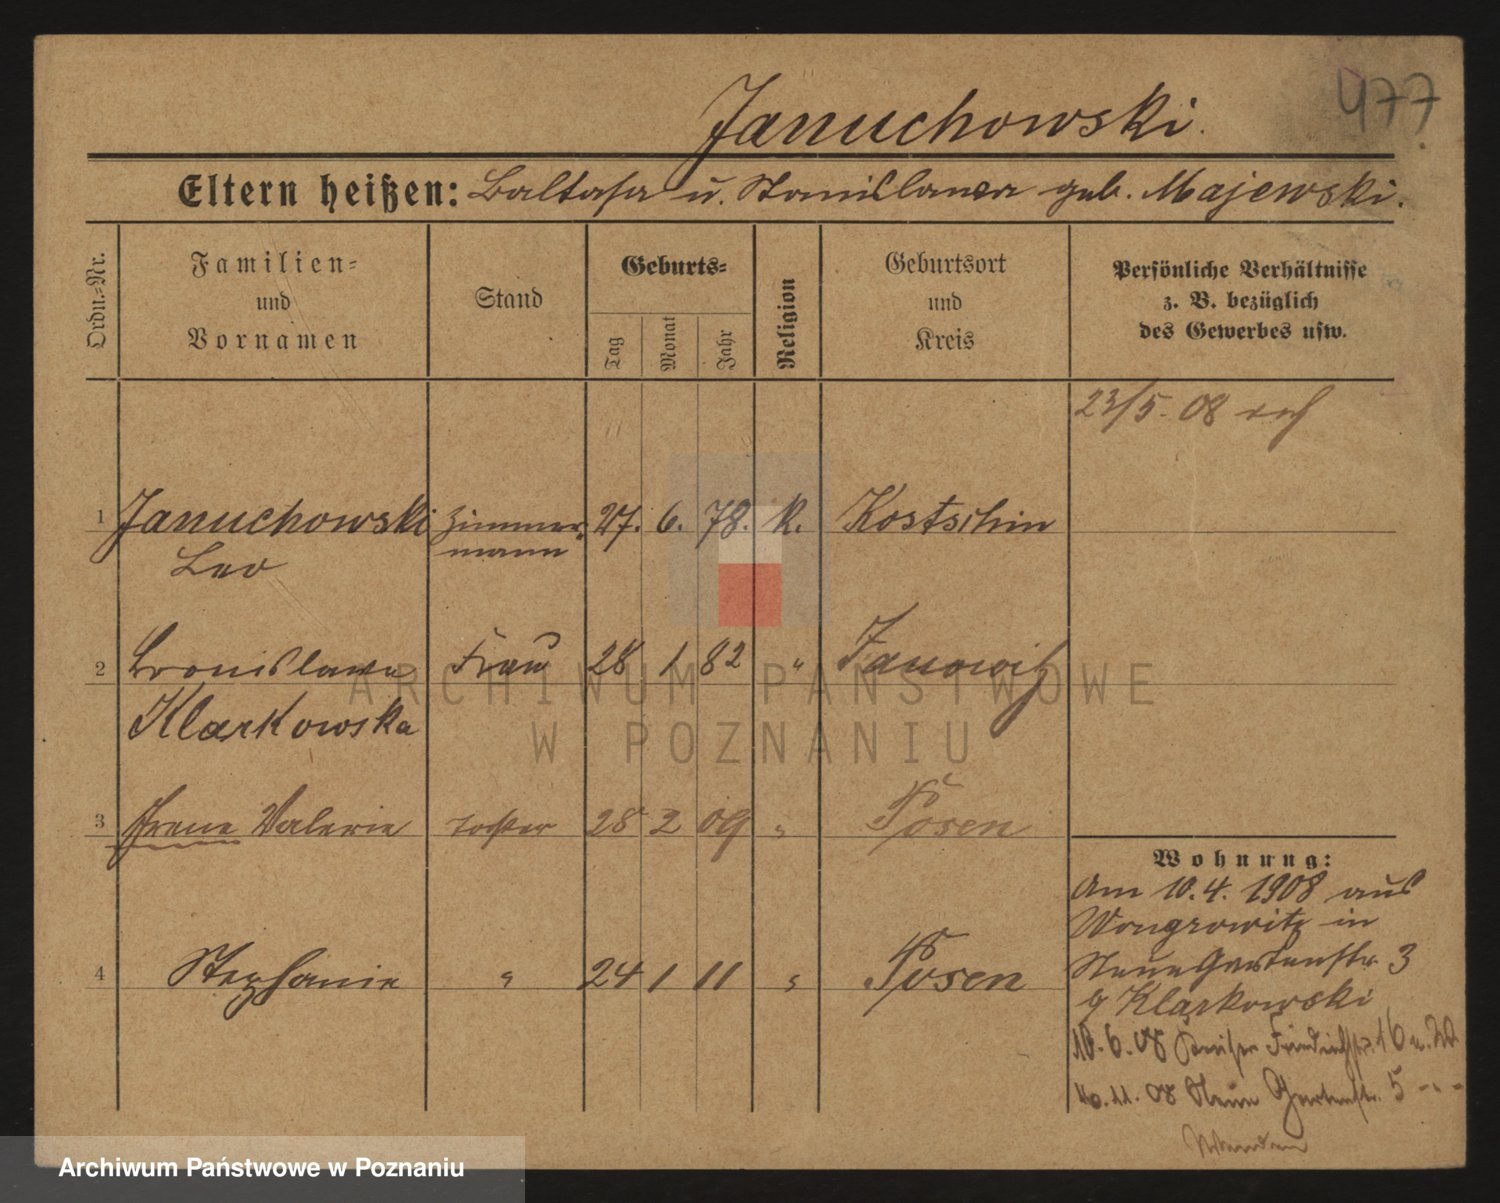 477
Januchowski.
Eltern heißen: Baltasar u. Stanislawa geb. Majewski.
Ordn.-Nr.
Familien-
und
Vornamen
Stand
Geburts-
Tag
Monat
Jahr
Religion
Geburtsort
und
Kreis
Persönliche Verhältnisse
z. B. bezüglich
des Gewerbes usw.
23/5. 08
1 Januchowski Zimmer- 27. 6. 78. K. Kostschin
Leo mann
2 Bronislawa Frau 28 1 82 " Janowitz
Klarkowska
3 Irene Valerie Tochter 28 2 09 " Posen
Wohnung:
Am 10. 4. 1908 aus
Wongrowitz in
Neue Gartenstr. 3
b/ Klarkowski
4 Stephanie " 24 1 11 " Posen
10. 6. 08 Kaiser Friedrichstr. 16 b. W
10. 11. 08 Neue Gartenstr. 5 - " -
ARCHIWUM PAŃSTWOWE
W POZNANIU
Archiwum Państwowe w Poznaniu